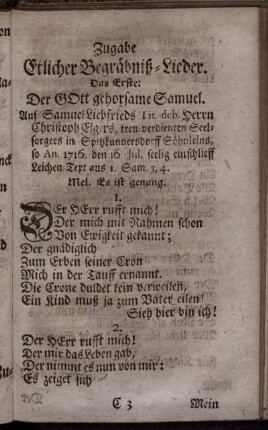 Zugabe
Etlicher Begräbniß-Lieder.
Das Erste:
Der GOtt gehorsame Samuel.
Auf Samuel Liebfrieds Tit. deb. Herrn
Christoph treu-verdienten Seel-
sorgers in Spitzkunnersdorff Söhnleins,
so An. 1716. den 16 Jul. seelig einschlieff
Leichen-Text aus 1. Sam. 3, 4.
Mel. Es ist genung.
1.
DEr HErr rufft mich!
Der mich mit Nahmen schon
Von Ewigkeit gekannt;
Der gnädiglich
Zum Erben seiner Cron
Mich in der Tauff ernannt.
Die Crone duldet kein verweilen,
Ein Kind muß ja zum Vater eilen!
Sieh hier bin ich!
2.
Der HErr rufft mich!
Der mir das Leben gab,
Der nimmt es nun von mir:
Es zeiget sich
C 3 Mein